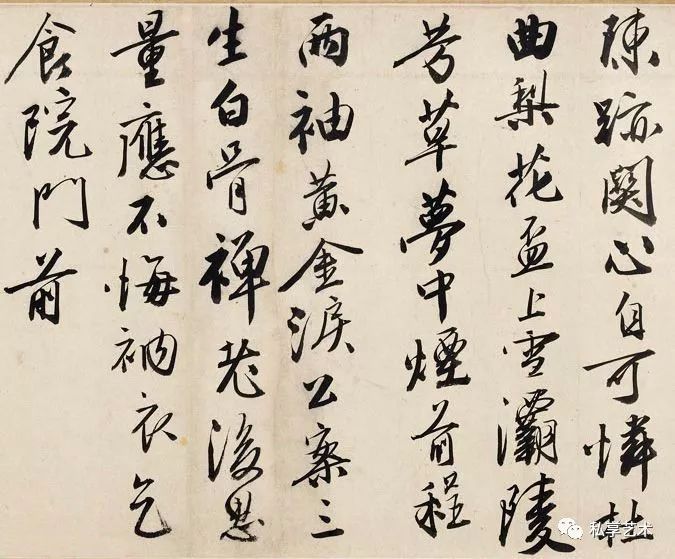 陳跡關心自可憐杜
曲梨花盃上雪灞陵
芳草夢中煙前程
兩袖黃金淚公案三
生白骨禪老後思
量應不悔衲衣乞
食院門前
私享艺术